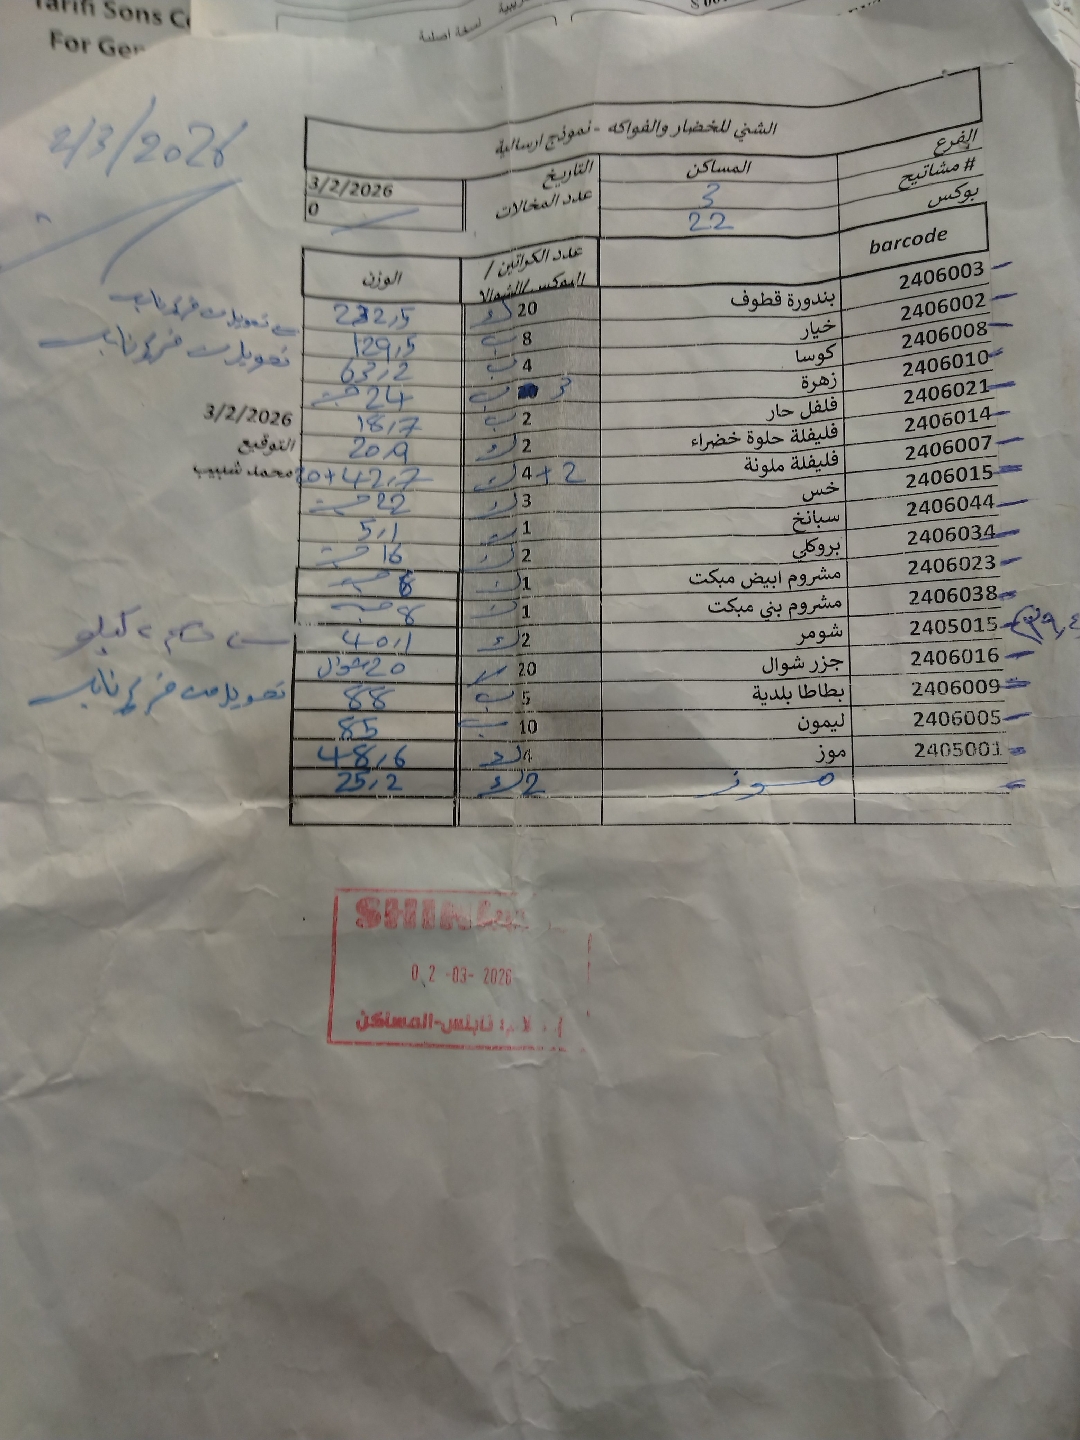 Tarifi Sons
For
نسخة اصلية
2/3/2026
الشني للخضار والفواكه - نموذج ارسالية
الفرع المساكن التاريخ 3/2/2026
# مشاتيح 3 عدد المخالات 0
بوكس 22
barcode عدد الكراتين / البوكس /الشوال الوزن
2406003 بندورة قطوف 20 ك 232,5
2406002 خيار 8 ب 129,5
2406008 كوسا 4 ب 63,2
2406010 زهرة 3 ب 24 حبة
2406021 فلفل حار 2 ب 18,7
2406014 فليفلة حلوة خضراء 2 ك 20,9
2406007 فليفلة ملونة 4 + 2 ك 42,7
2406015 خس 3 22 حبة
2406044 سبانخ 1 5,1
2406034 بروكلي 2 ك 16 حبة
2406023 مشروم ابيض مبكت 1 ك 8 حبة
2406038 مشروم بني مبكت 1 ك 8 حبة
2405015 شومر 2 ك 40,1
2406016 جزر شوال 20 20 شوال
2406009 بطاطا بلدية 5 ب 88
2406005 ليمون 10 ب 85
2405001 موز 4 ك 48,6
موز 2 ك 25,2
3/2/2026
التوقيع
محمد شبيب
SHINI
02-03-2026
نابلس-المساكن